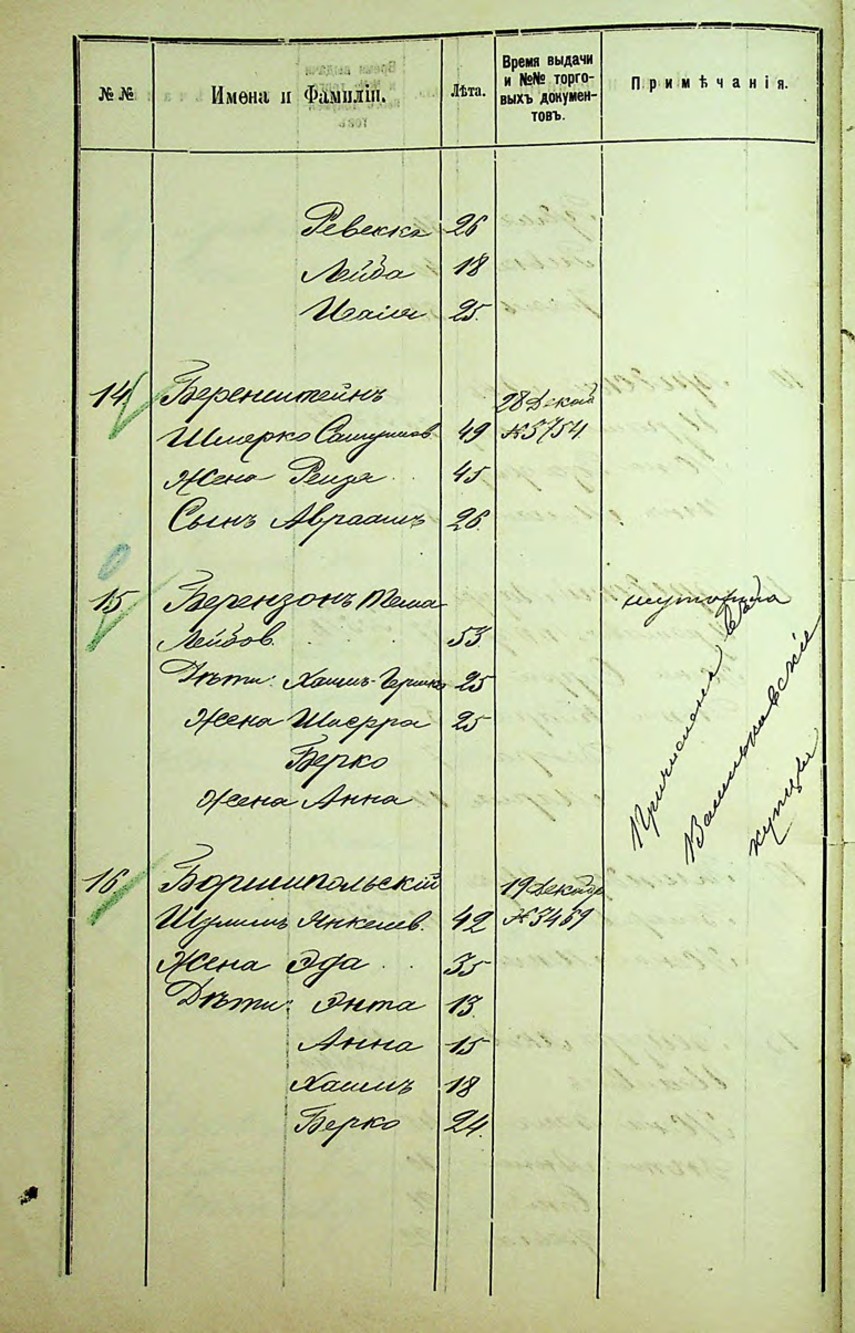 №№ Имена и Фамиліи. Лѣта. Время выдачи и №№ торговыхъ документовъ. Примѣчанія.
Ревекка 26
Лейба 18
Исаія 25
14 Беренштейнъ 28 Декаб
Шмерко 49 №3754
Жена Рейзя 45
Сынъ Авраамъ 26
15 Берензонъ
Лейбов. 53
Дѣти: Хаимъ-Гершко 25
Жена 25
Берко
Жена Анна
Причислена въ
Васильковскіе
купцы
16 Боришпольскій 19 Декабр
Шулимъ Янкелев. 42 №3469
Жена Эда 35
Дѣти: Энта 13
Анна 15
Хаимъ 18
Берко 24